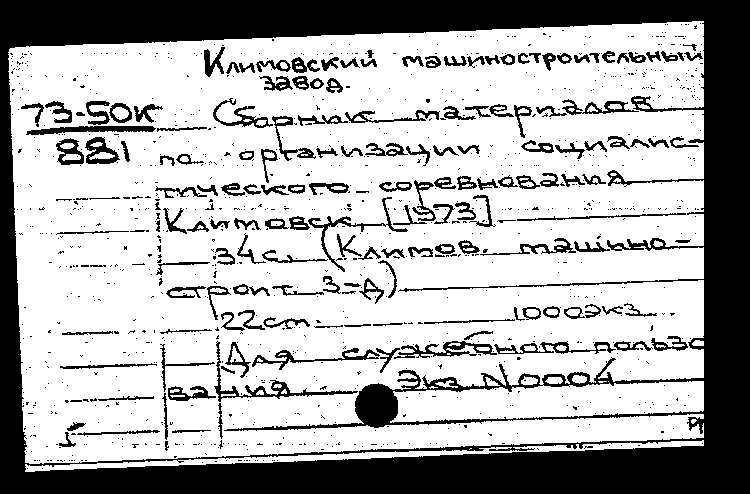 Климовский машиностроительный
завод.
73-50к Сборник материалов
881 по организации социалис-
тического соревнования
Климовск, [1973]
34 с. (Климов. машино-
строит. з-д)
22 см. 1000 экз.
Для служебного пользо
вания. Экз. N 0004